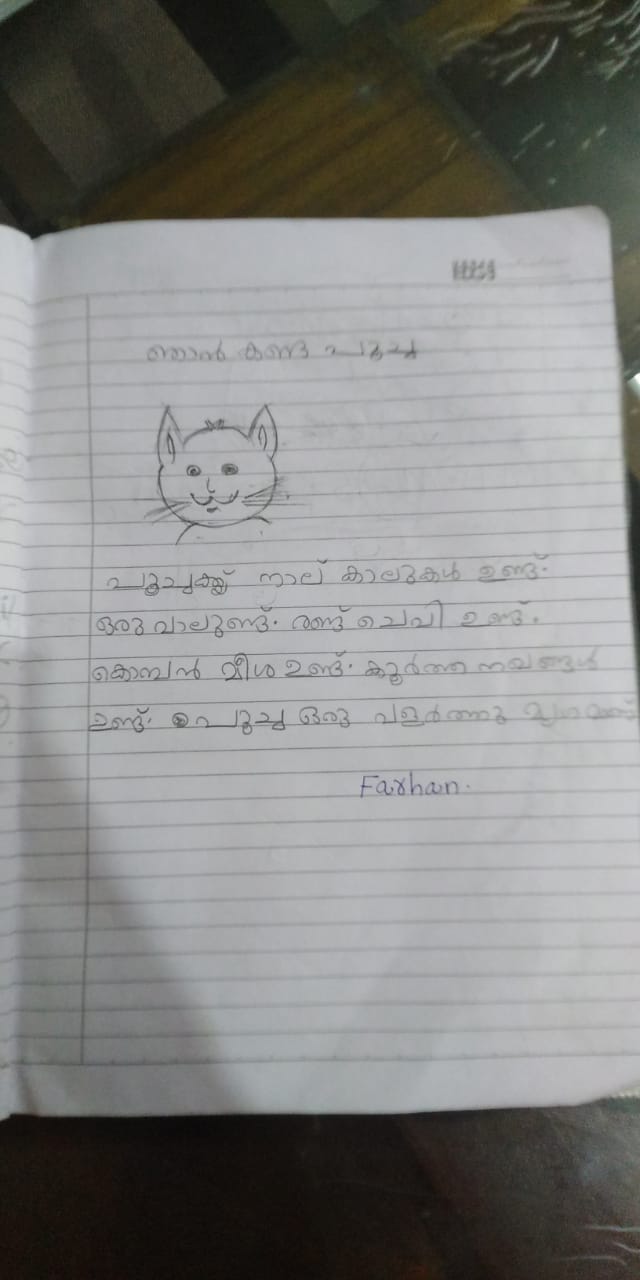 ഞാൻ കണ്ട പൂച്ച
പൂച്ചക്ക് നാല് കാലുകൾ ഉണ്ട്.
ഒരു വാലുണ്ട്. രണ്ട് ചെവി ഉണ്ട്.
കൊമ്പൻ മീശ ഉണ്ട്. കൂർത്ത നഖങ്ങൾ
ഉണ്ട്. പൂച്ച ഒരു വളർത്തു മൃഗമാണ്
Farhan.